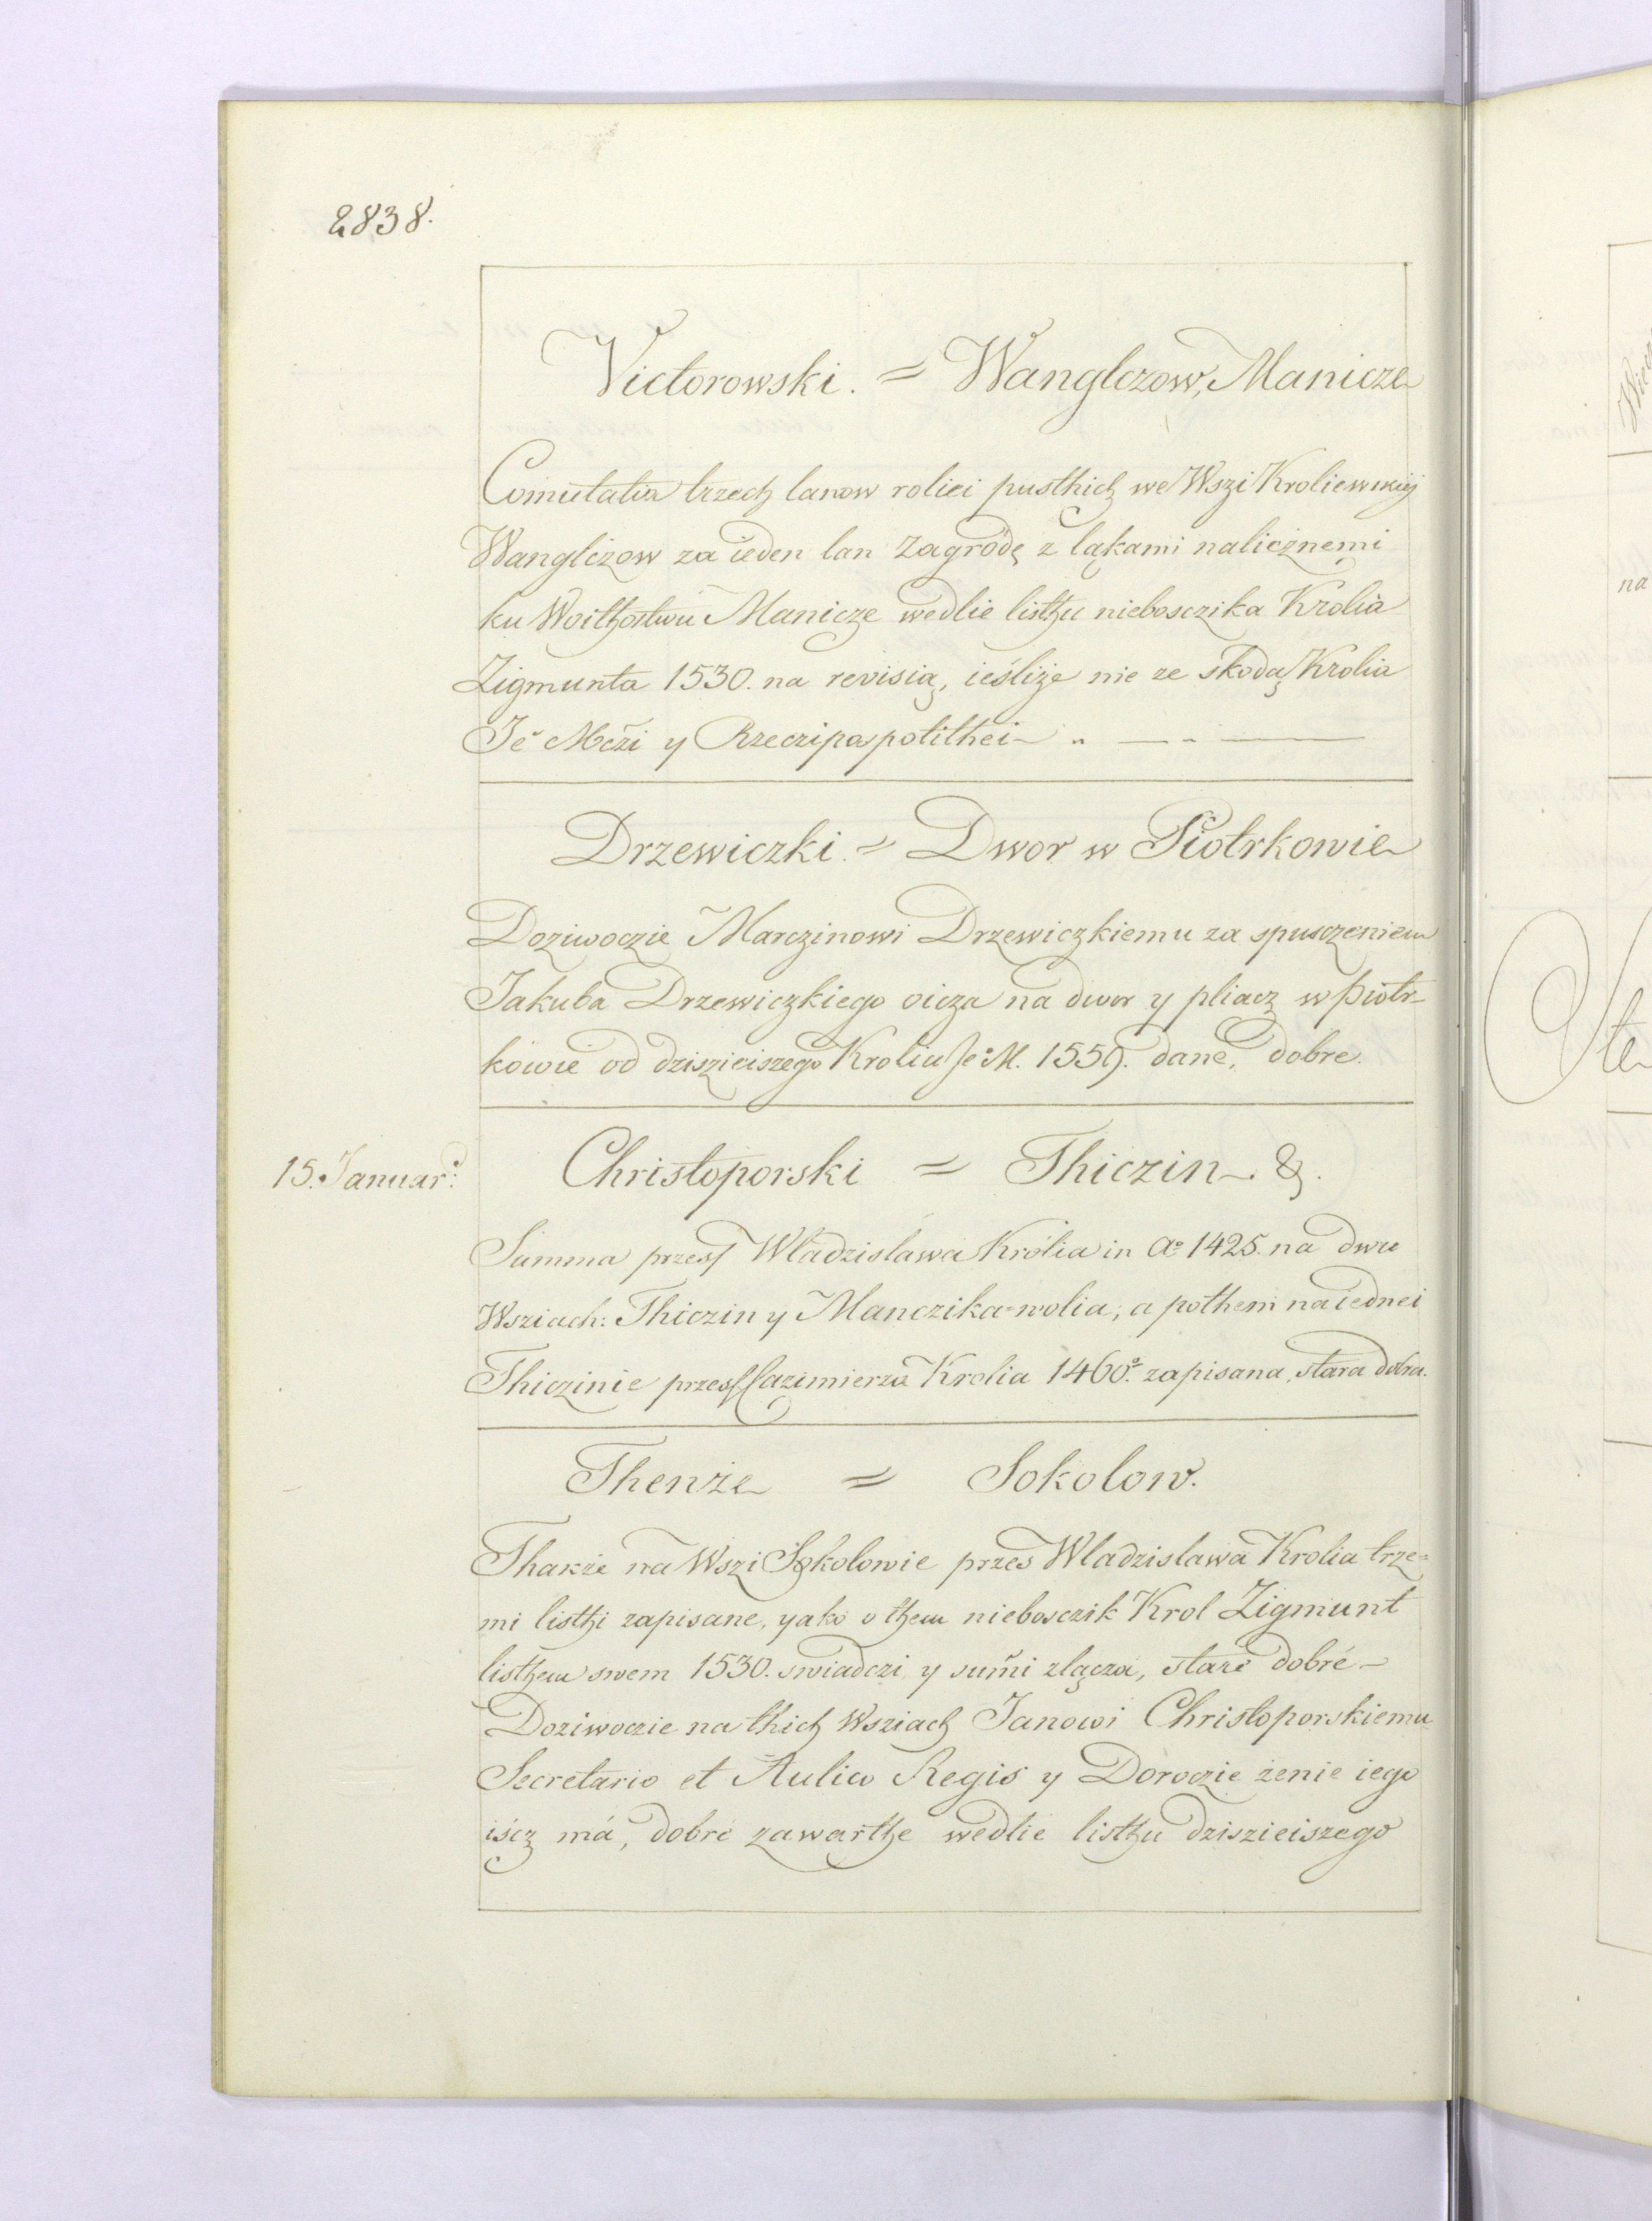 2838.
Victorowski. = Wanglczow, Manicze
Comutatia trzech lanow roliei pusthich we Wszi Kroliewskiej
Wangliczow za ieden lan zagrodę z ląkami nalieznemi
ku Woithostwu Manicze wedlie listhu niebosczika Krolia
Zigmunta 1530. na revisią, ieśliże nie ze skodą Krolia
Je° Mczi y Rzeczipaspolithei
Drzewiczki. = Dwor w Piotrkowie
Doziwoczie Marczinowi Drzewiczkiemu za spusczeniem
Jakuba Drzewiczkiego oicza na dwor y pliacz w Piotr-
kowie od dziszieiszego Krolia Je° M. 1559. dane, dobre.
15. Januar:
Christoporski = Thiczin &.
Summa przess Wladzislawa Królia in A° 1425. na dwu
Wsziach: Thiczin y Manczika-wolia, a pothem na iednei
Thiczinie przess Cazimierza Krolia 1460° zapisana, stara dobra.
Thenże = Sokolow.
Thakże na Wszi Sokolowie przes Wladzislawa Krolia trze=
mi listhi zapisane, yako o them niebosczik Krol Zigmunt
listhem swem 1530. swiadczi y sum̃i zlącza, stare dobré -
Doziwoczie na thich Wsziach Janowi Christoporskiemu
Secretario et Aulico Regis y Doroczie żenie iego
iścz má, dobré zawarthe wedlie listhu dziszieiszego
na